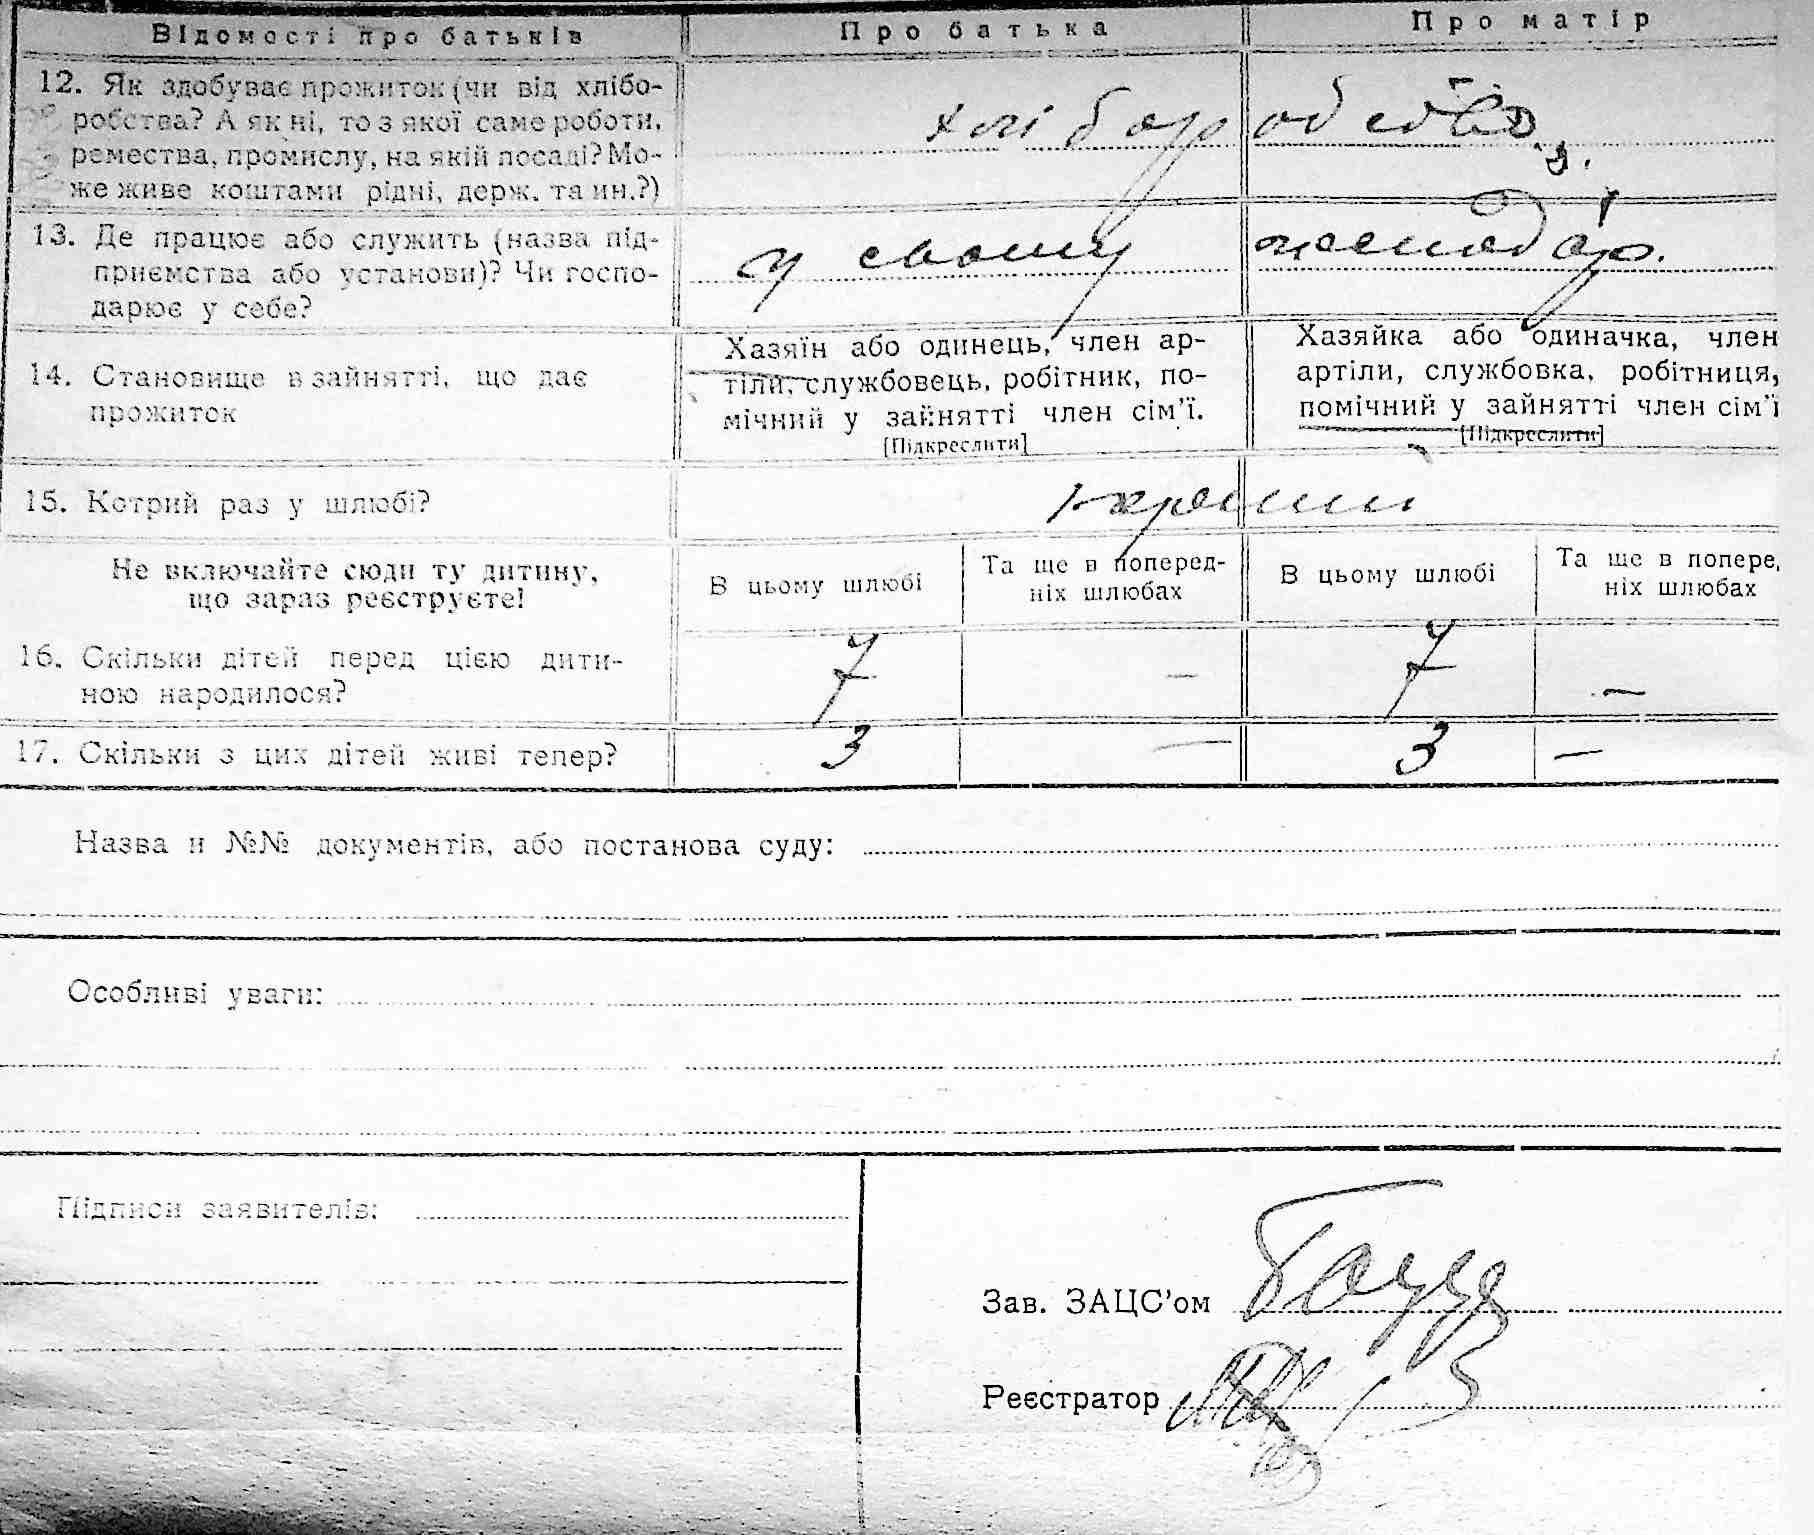 Відомості про батьків Про батька Про матір
12. Як здобуває прожиток (чи від хлібо-
робства? А як ні, то з якої саме роботи,
ремества, промислу, на якій посаді? Мо-
же живе коштами рідні, держ. та ин.?)
хліборобство
13. Де працює або служить (назва під-
приємства або установи)? Чи госпо-
дарює у себе?
у своему господар.
14. Становище в зайнятті, що дає
прожиток
Хазяїн або одинець, член ар-
тіли, службовець, робітник, по-
мічний у зайнятті член сім'ї.
[Підкреслити]
Хазяйка або одиначка, член
артіли, службовка, робітниця,
помічний у зайнятті член сім'ї
[Підкреслити]
15. Котрий раз у шлюбі?
Не включайте сюди ту дитину,
що зараз реєструєте!
В цьому шлюбі
Та ще в поперед-
ніх шлюбах
В цьому шлюбі
Та ще в попере,
ніх шлюбах
16. Скільки дітей перед цією дити-
ною народилося?
7 — 7 —
17. Скільки з цих дітей живі тепер? 3 — 3 —
Назва и №№ документів, або постанова суду:
Особливі уваги:
Підписи заявителів:
Зав. ЗАЦС'ом
Реєстратор